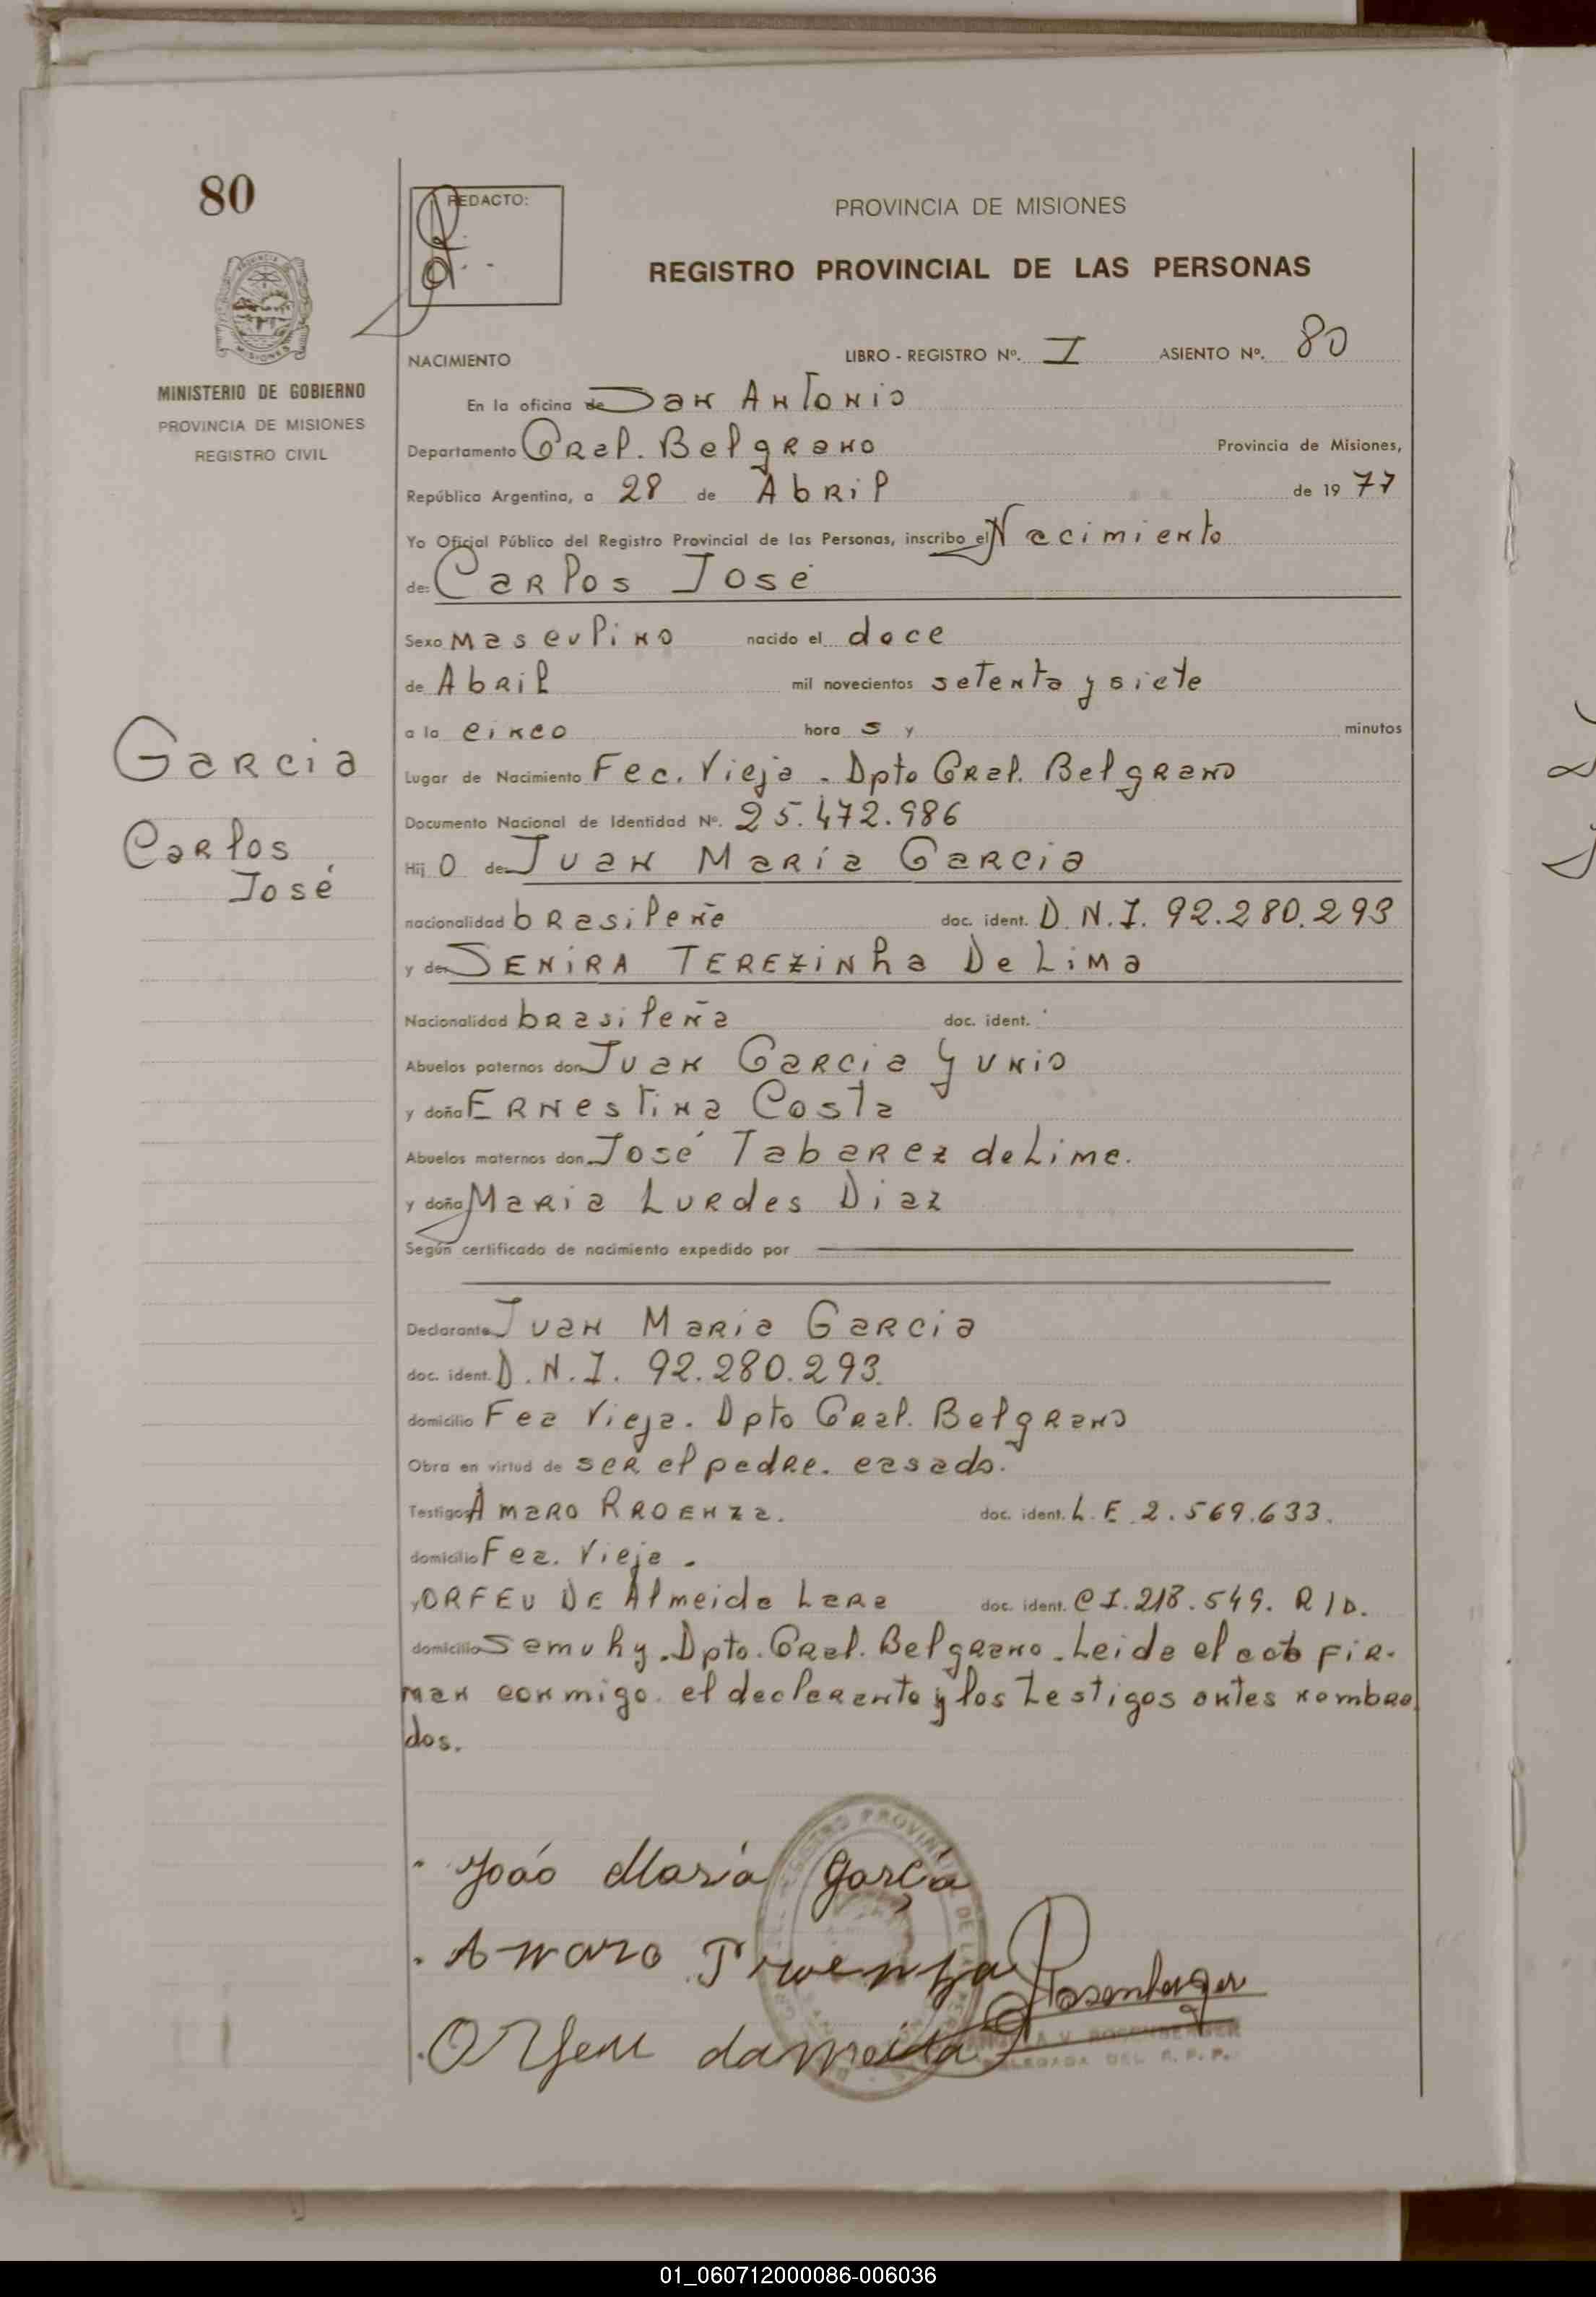 80
REDACTO:
PROVINCIA DE MISIONES
REGISTRO PROVINCIAL DE LAS PERSONAS
MINISTERIO DE GOBIERNO
PROVINCIA DE MISIONES
REGISTRO CIVIL
NACIMIENTO LIBRO - REGISTRO Nº. I ASIENTO Nº. 80
En la oficina de San Antonio
Departamento Gral. Belgrano Provincia de Misiones,
República Argentina, a 28 de Abril de 1977
Yo Oficial Público del Registro Provincial de las Personas, inscribo el Nacimiento
de: Carlos José
Sexo masculino nacido el doce
de Abril mil novecientos setenta y siete
a la cinco hora s y minutos
Garcia
Carlos
José
Lugar de Nacimiento Fca. Vieja - Dpto Gral. Belgrano
Documento Nacional de Identidad Nº. 25.472.986
Hij O de Juan María Garcia
nacionalidad brasileña doc. ident. D.N.I. 92.280.293
y de SENIRA TEREZINha De Lima
Nacionalidad brasileña doc. ident.
Abuelos paternos don Juan Garcia Yunio
y doña Ernestina Costa
Abuelos maternos don José Tabarez de Lima.
y doña Maria Lurdes Diaz
Según certificado de nacimiento expedido por
Declarante Juan Maria Garcia
doc. ident. D.N.I. 92.280.293.
domicilio Fca Vieja. Dpto Gral. Belgrano
Obra en virtud de ser el padre. casado.
Testigos Amaro Rroenza. doc. ident. L.E. 2.569.633.
domicilio Fca. Vieja.
y ORFEU DE Almeida Lara doc. ident. C I. 218.549. R/D.
domicilio Samuhy. Dpto. Gral. Belgrano. Leida el acta fir-
man conmigo el declarante y los testigos antes nombra
dos.
João Maria Garcia
Amaro Proenza
Orfeu dalmeida
Rosenberger
ROSENBERGER
DELEGADA DEL R. P. P.
01_060712000086-006036